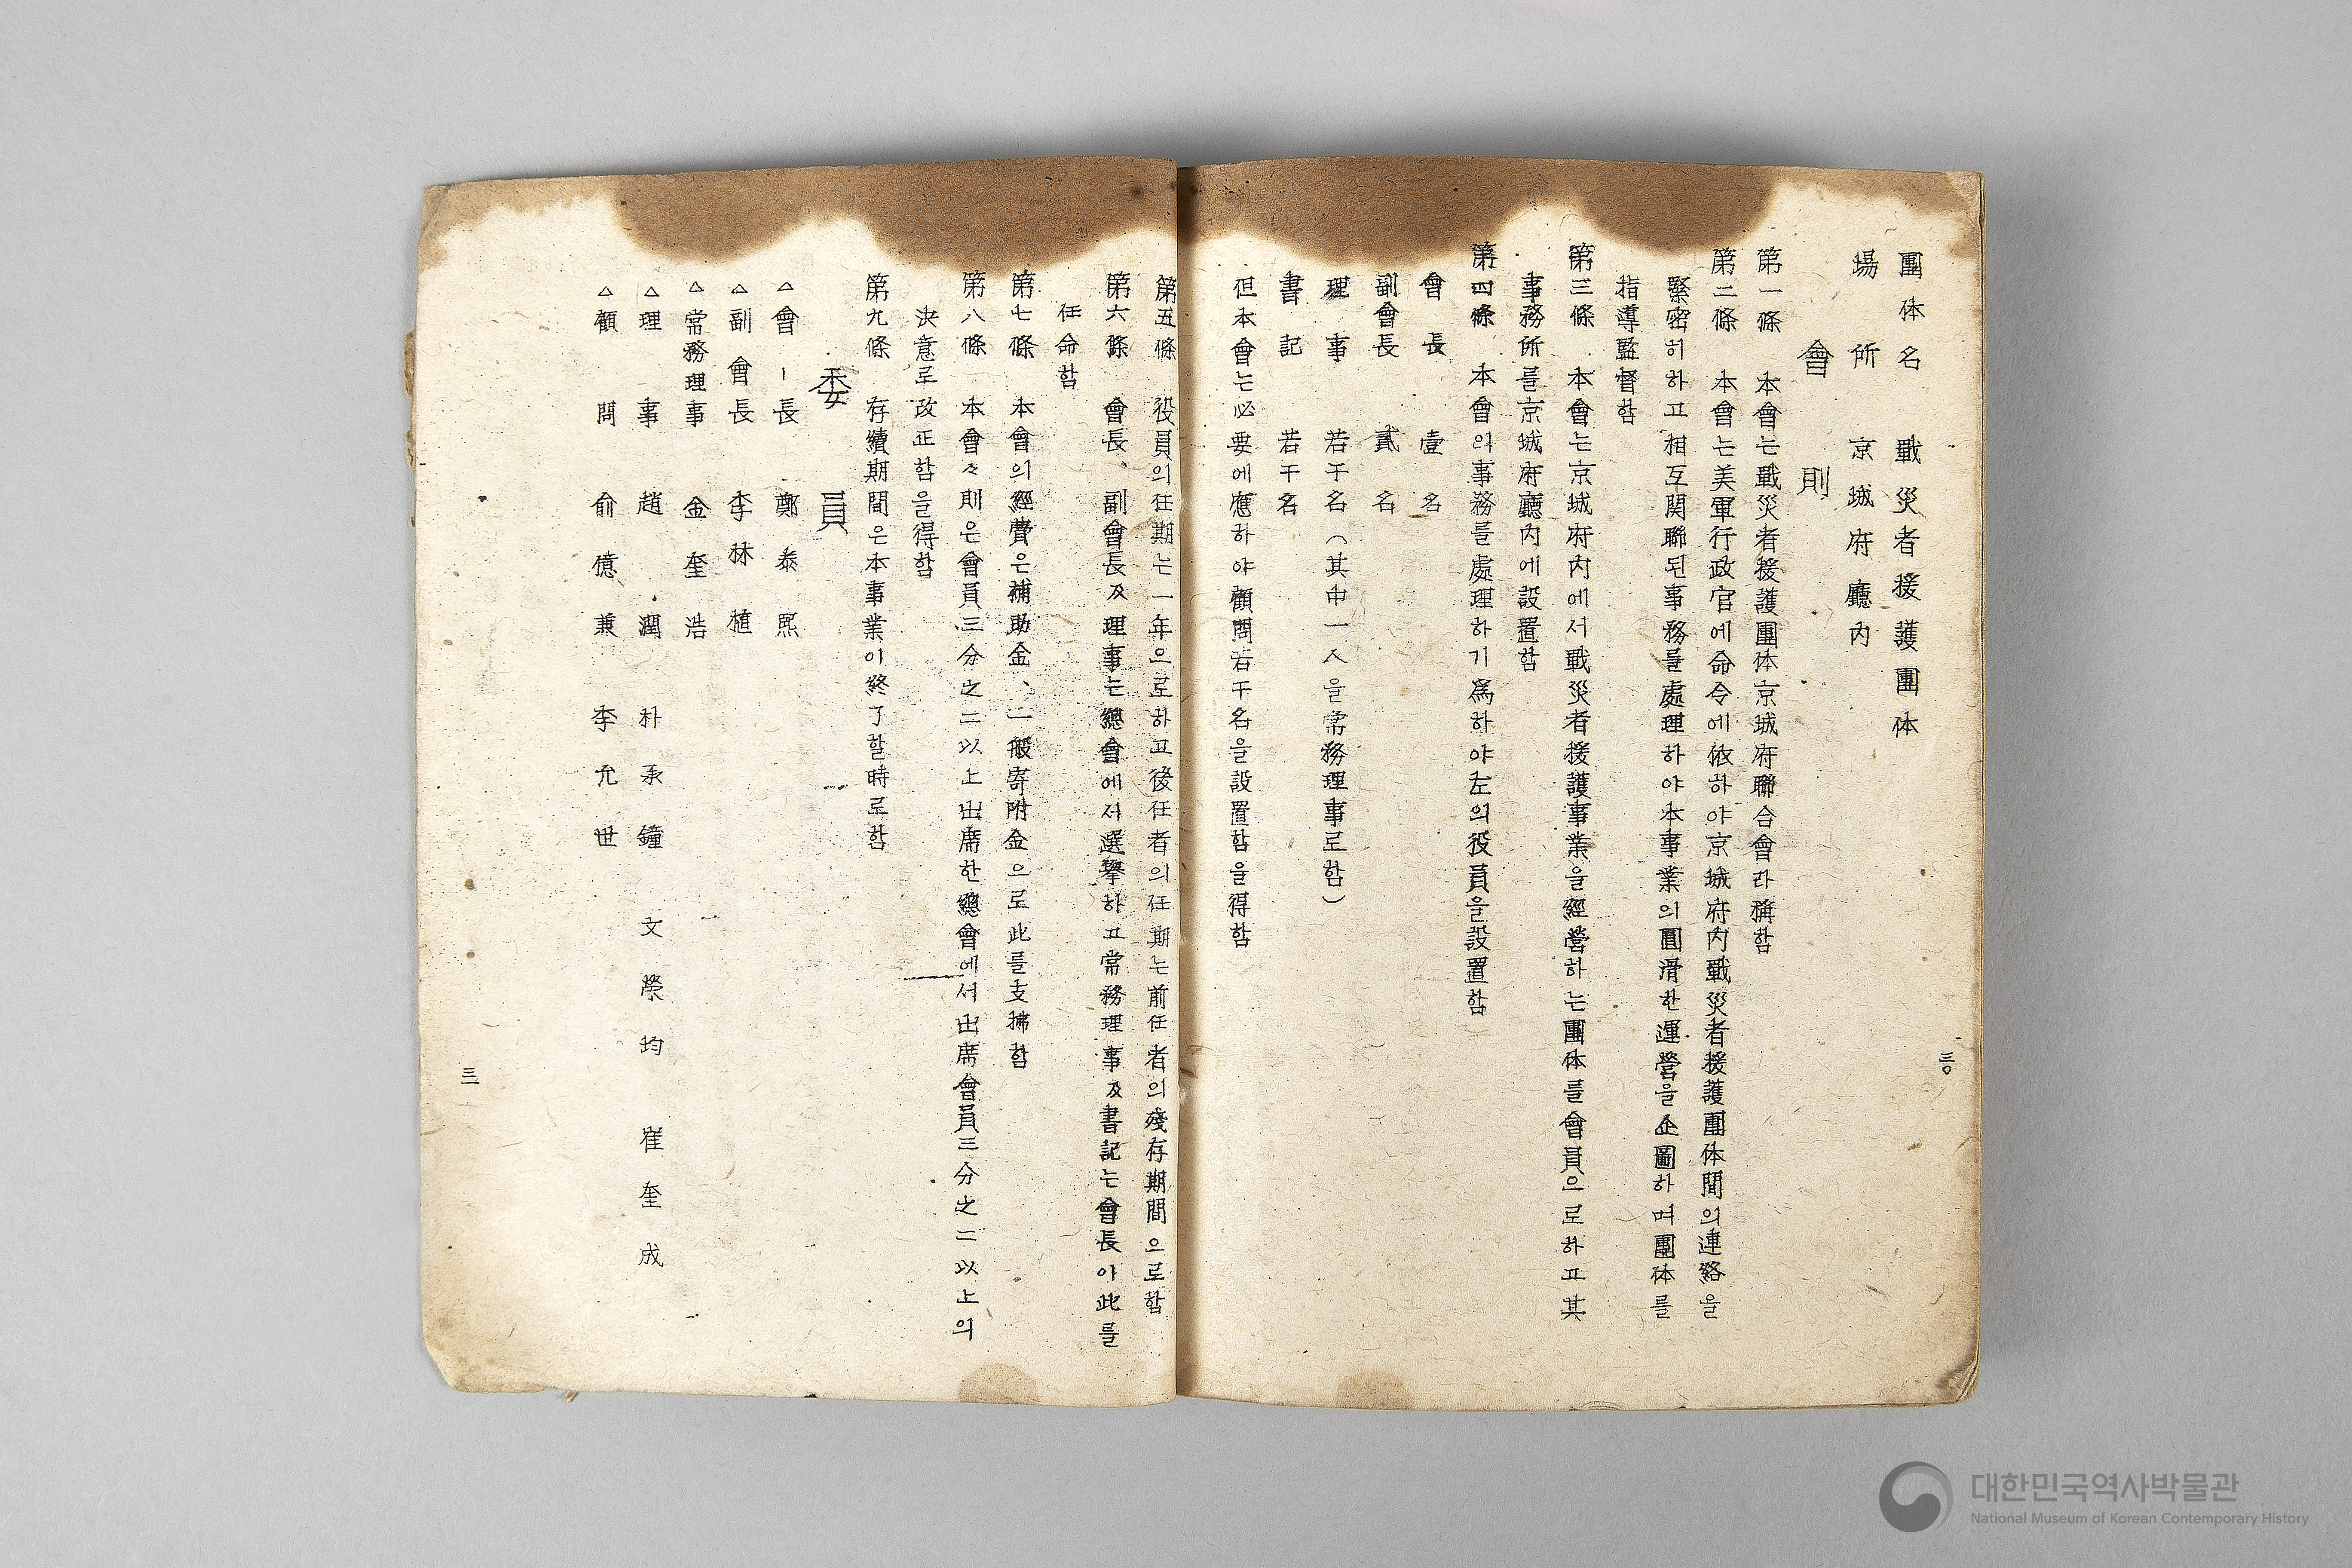 團体名 戰災者援護團体
場所 京城府廳內
會則
第一條 本會는戰災者援護團体京城府聯合會라稱함
第二條 本會는美軍行政官에命令에依하야京城府內戰災者援護團体間의連絡을
緊密히하고相互関聯된事務를處理하야本事業의圓滑한運營을企圖하며團体를
指導監督함
第三條 本會는京城府內에서戰災者援護事業을經營하는團体를會員으로하고其
事務所를京城府廳內에設置함
第四條 本會의事務를處理하기爲하야左의役員을設置함
會長 壹名
副會長 貳名
理事 若干名(其中一人을常務理事로함)
書記 若干名
但本會는必要에應하야顧問若干名을設置함을得함
三〇
第五條 役員의任期는一年으로하고後任者의任期는前任者의殘存期間으로함
第六條 會長、副會長及理事는總會에서選擧하고常務理事及書記는會長아此를
任命함
第七條 本會의經費은補助金、一般寄附金으로此를支拂함
第八條 本會々則은會員三分之二以上出席한總會에서出席會員三分之二以上의
決意로改正함을得함
第九條 存續期間은本事業이終了할時로함
委員
△會-長 鄭泰熙
△副會長 李林植
△常務理事 金奎浩
△理事 趙潤 朴承鐘 文榮均 崔奎成
△顧問 俞億兼 李允世
三一
대한민국역사박물관
National Museum of Korean Contemporary History